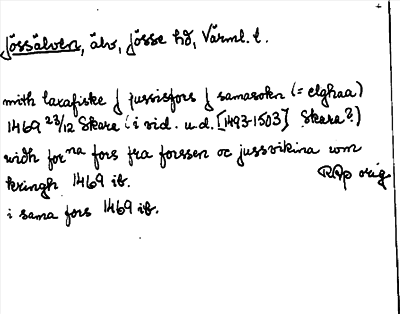 Jössälven, älv, Jösse hd, Värml. l.
mith laxafiske j jussisfors j samasokn (= elghaa)
1469 23/12 Skara (i vid. u.d. [1493-1503] Skara?)
widh for na fors fra forssen oc jussvikina wm
kringh 1469 ib. RAp orig
i sama fors 1469 ib.